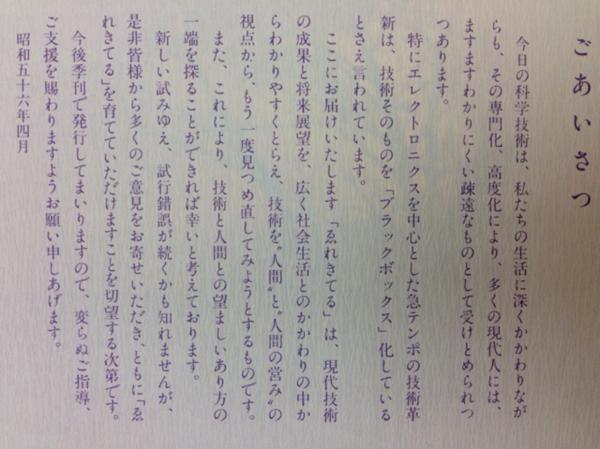 ごあいさつ
今日の科学技術は、私たちの生活に深くかかわりなが
らも、その専門化、高度化により、多くの現代人には、
ますますわかりにくい疎遠なものとして受けとめられつ
つあります。
特にエレクトロニクスを中心とした急テンポの技術革
新は、技術そのものを「ブラックボックス」化している
とさえ言われています。
ここにお届けいたします「ゑれきてる」は、現代技術
の成果と将来展望を、広く社会生活とのかかわりの中か
らわかりやすくとらえ、技術を〝人間〟と〝人間の営み〟の
視点から、もう一度見つめ直してみようとするものです。
また、これにより、技術と人間との望ましいあり方の
一端を探ることができれば幸いと考えております。
新しい試みゆえ、試行錯誤が続くかも知れませんが、
是非皆様から多くのご意見をお寄せいただき、ともに「ゑ
れきてる」を育てていただけますことを切望する次第です。
今後季刊で発行してまいりますので、変らぬご指導、
ご支援を賜わりますようお願い申しあげます。
昭和五十六年四月